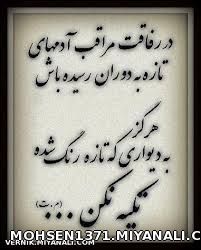 در رفاقت مراقب آدمهای
تازه به دوران رسیده باش
هرگز
به دیواری که تازه رنگ شده
تکیه نکن ...
(م.ت)
MOHSEN1371.MIYANALI.C
VERNIK.MIYANALI.COM